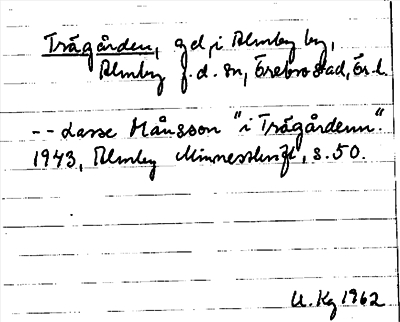 Trägården, gd, i Almby by,
Almby f.d. sn, Örebro stad, Ör. l.
-- Lasse Månsson "i Trägårdenn".
1943, Almby Minnesskrift, s. 50.
U. Kg 1962